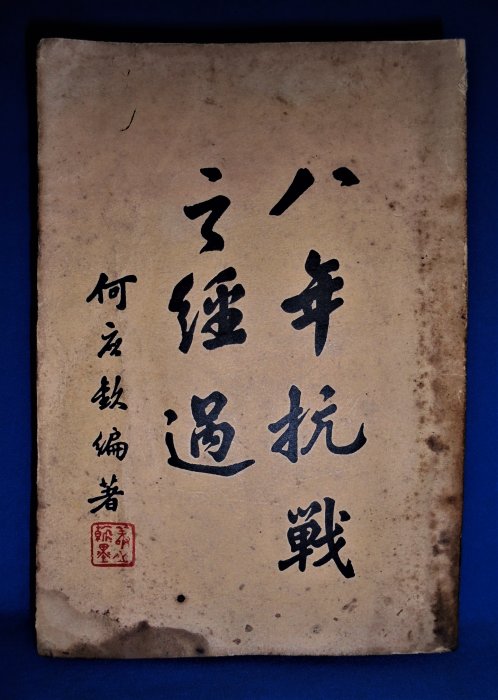 八年抗戰
之經過
何应欽編著